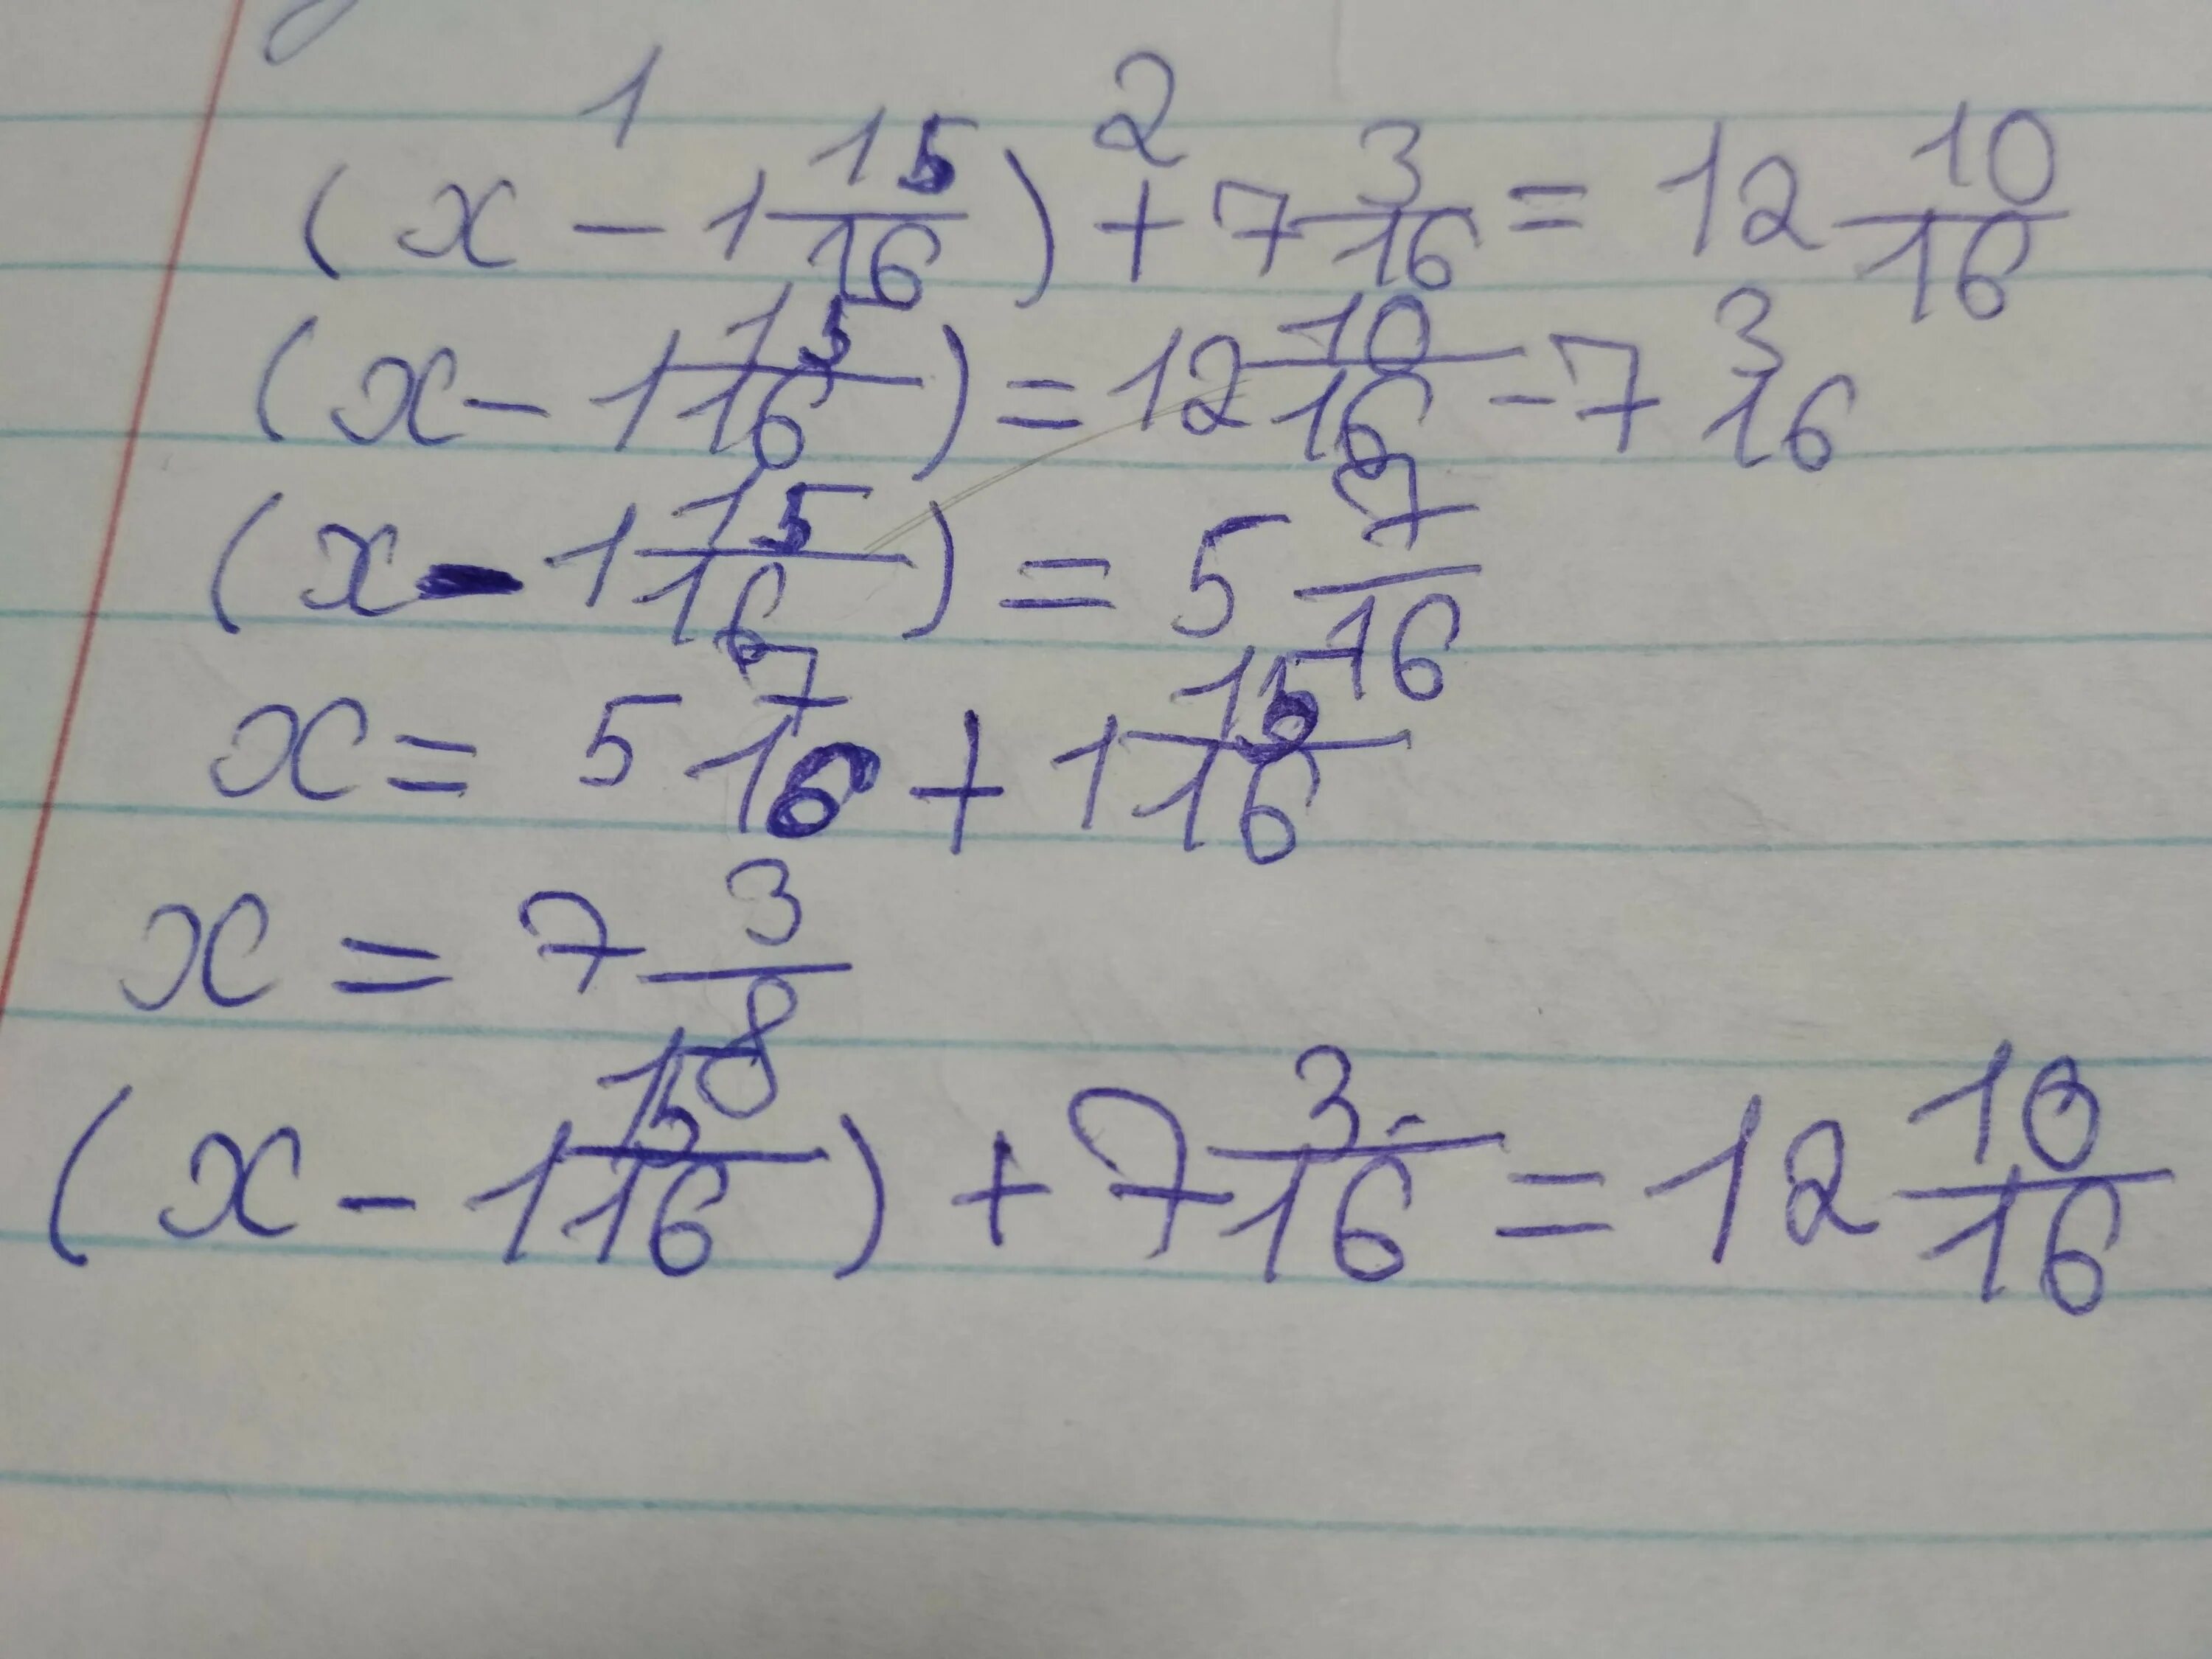 1 2
(x - 1 15/16) + 7 3/16 = 12 10/16
(x - 1 15/16) = 12 10/16 - 7 3/16
(x - 1 15/16) = 5 7/16
x = 5 7/16 + 1 15/16
x = 7 3/8
(x - 1 15/16) + 7 3/16 = 12 10/16